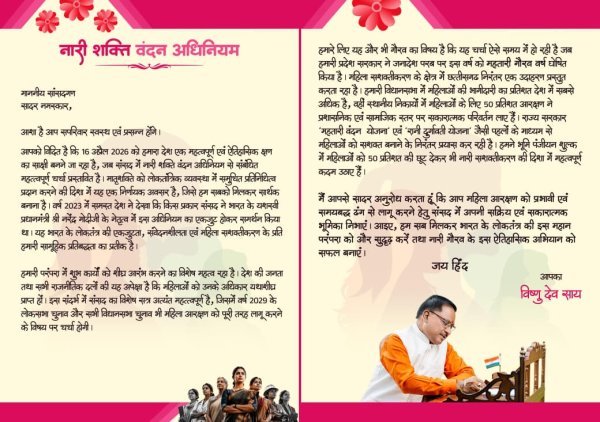 नारी शक्ति वंदन अधिनियम
माननीय सांसदगण
सादर नमस्कार,
आशा है आप सपरिवार स्वस्थ एवं प्रसन्न होंगे।
आपको विदित है कि 16 अप्रैल 2026 को हमारा देश एक महत्वपूर्ण एवं ऐतिहासिक क्षण
का साक्षी बनने जा रहा है, जब संसद में नारी शक्ति वंदन अधिनियम से संबंधित
महत्वपूर्ण चर्चा प्रस्तावित है। मातृशक्ति को लोकतांत्रिक व्यवस्था में समुचित प्रतिनिधित्व
प्रदान करने की दिशा में यह एक निर्णायक अवसर है, जिसे हम सबको मिलकर सार्थक
बनाना है। वर्ष 2023 में समस्त देश ने देखा कि किस प्रकार संसद ने भारत के यशस्वी
प्रधानमंत्री श्री नरेंद्र मोदीजी के नेतृत्व में इस अधिनियम का एकजुट होकर समर्थन किया
था। यह भारत के लोकतंत्र की एकजुटता, संवेदनशीलता एवं महिला सशक्तीकरण के प्रति
हमारी सामूहिक प्रतिबद्धता का प्रतीक है।
हमारी परंपरा में शुभ कार्यों को शीघ्र आरंभ करने का विशेष महत्व रहा है। देश की जनता
तथा सभी राजनीतिक दलों की यह अपेक्षा है कि महिलाओं को उनके अधिकार यथाशीघ्र
प्राप्त हों। इस संदर्भ में संसद का विशेष सत्र अत्यंत महत्वपूर्ण है, जिसमें वर्ष 2029 के
लोकसभा चुनाव और सभी विधानसभा चुनाव भी महिला आरक्षण को पूरी तरह लागू करने
के विषय पर चर्चा होगी।
हमारे लिए यह और भी गौरव का विषय है कि यह चर्चा ऐसे समय में हो रही है जब
हमारी प्रदेश सरकार ने जनादेश परब पर इस वर्ष को महतारी गौरव वर्ष घोषित
किया है। महिला सशक्तीकरण के क्षेत्र में छत्तीसगढ़ निरंतर एक उदाहरण प्रस्तुत
करता रहा है। हमारी विधानसभा में महिलाओं की भागीदारी का प्रतिशत देश में सबसे
अधिक है, वहीं स्थानीय निकायों में महिलाओं के लिए 50 प्रतिशत आरक्षण ने
प्रशासनिक एवं सामाजिक स्तर पर सकारात्मक परिवर्तन लाए हैं। राज्य सरकार
'महतारी वंदन योजना' एवं 'रानी दुर्गावती योजना' जैसी पहलों के माध्यम से
महिलाओं को सशक्त बनाने के निरंतर प्रयास कर रही है। हमने भूमि पंजीयन शुल्क
में महिलाओं को 50 प्रतिशत की छूट देकर भी नारी सशक्तीकरण की दिशा में महत्वपूर्ण
कदम उठाए हैं।
मैं आपसे सादर अनुरोध करता हूं कि आप महिला आरक्षण को प्रभावी एवं
समयबद्ध ढंग से लागू करने हेतु संसद में अपनी सक्रिय एवं सकारात्मक
भूमिका निभाएं। आइए, हम सब मिलकर भारत के लोकतंत्र की इस महान
परंपरा को और सुदृढ़ करें तथा नारी गौरव के इस ऐतिहासिक अभियान को
सफल बनाएं।
जय हिंद
आपका
विष्णु देव साय